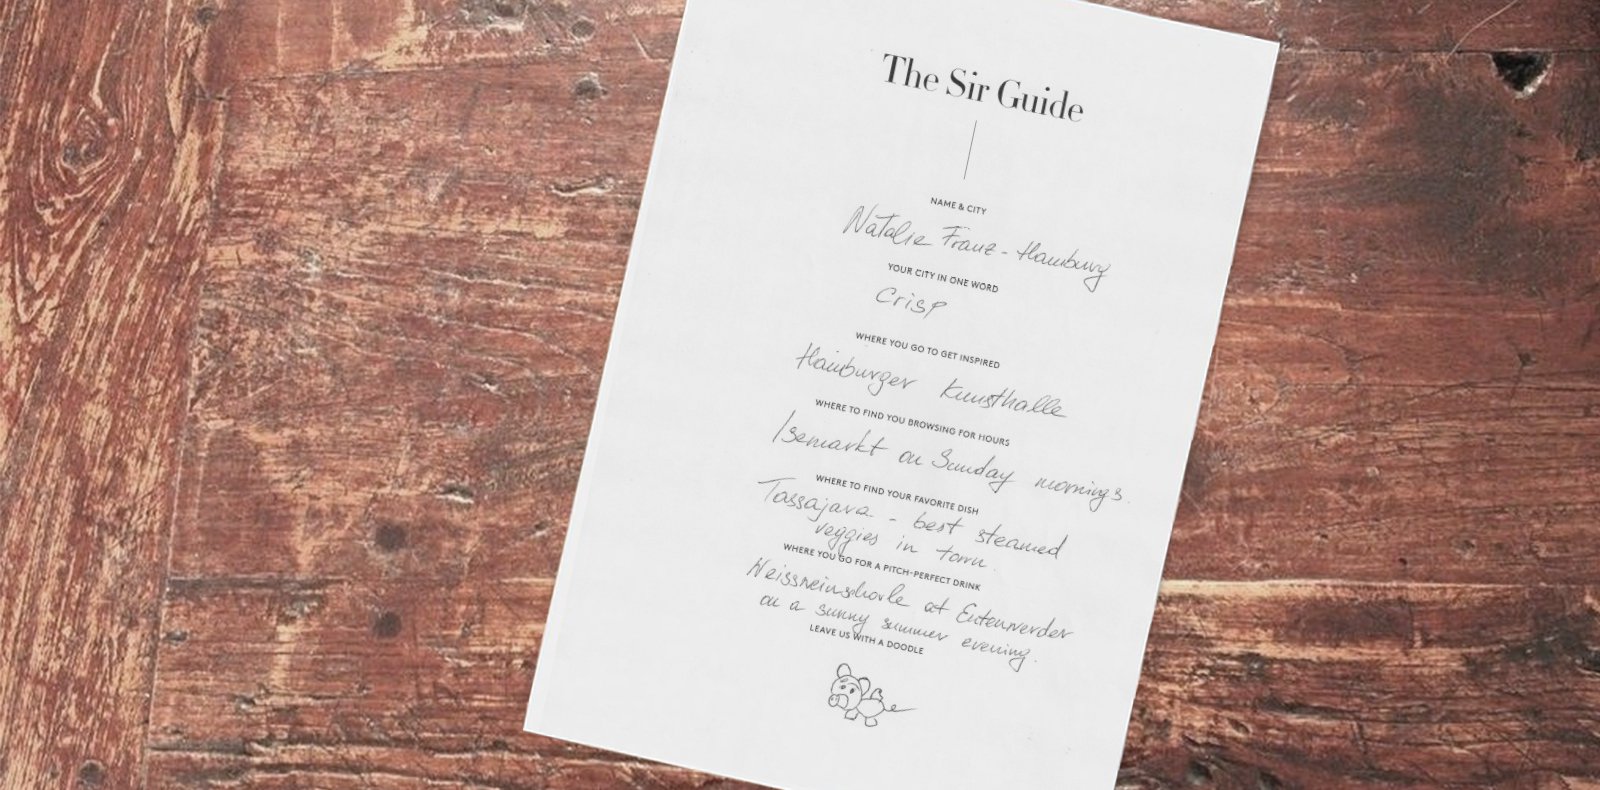 The Sir Guide
NAME & CITY
Natalie Franz - Hamburg
YOUR CITY IN ONE WORD
Crisp
WHERE YOU GO TO GET INSPIRED
Hamburger Kunsthalle
WHERE TO FIND YOU BROWSING FOR HOURS
Isemarkt on Sunday mornings.
WHERE TO FIND YOUR FAVORITE DISH
Tassajara - best steamed
veggies in town.
WHERE YOU GO FOR A PITCH-PERFECT DRINK
Weissweinschorle at Entenwerder
on a sunny summer evening.
LEAVE US WITH A DOODLE